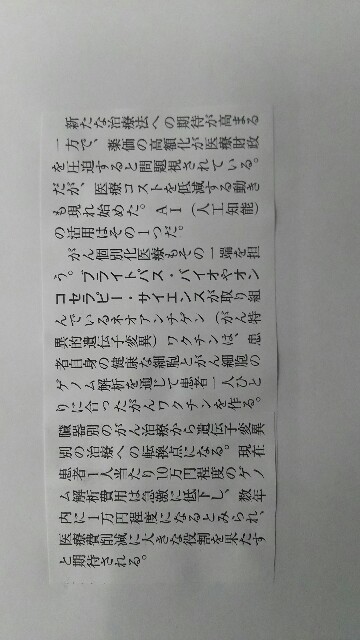 新たな治療法への期待が高まる
一方で、薬価の高額化が医療財政
を圧迫すると問題視されている。
だが、医療コストを低減する動き
も現れ始めた。ＡＩ（人工知能）
の活用はその１つだ。
がん個別化医療もその一端を担
う。ブライトパス・バイオやオン
コセラピー・サイエンスが取り組
んでいるネオアンチゲン（がん特
異的遺伝子変異）ワクチンは、患
者自身の健康な細胞とがん細胞の
ゲノム解析を通して患者一人ひと
りに合ったがんワクチンを作る。
臓器別のがん治療から遺伝子変異
別の治療への転換点になる。現在
患者１人当たり10万円程度のゲノ
ム解析費用は急激に低下し、数年
内に１万円程度になるとみられ、
医療費削減に大きな役割を果たす
と期待される。